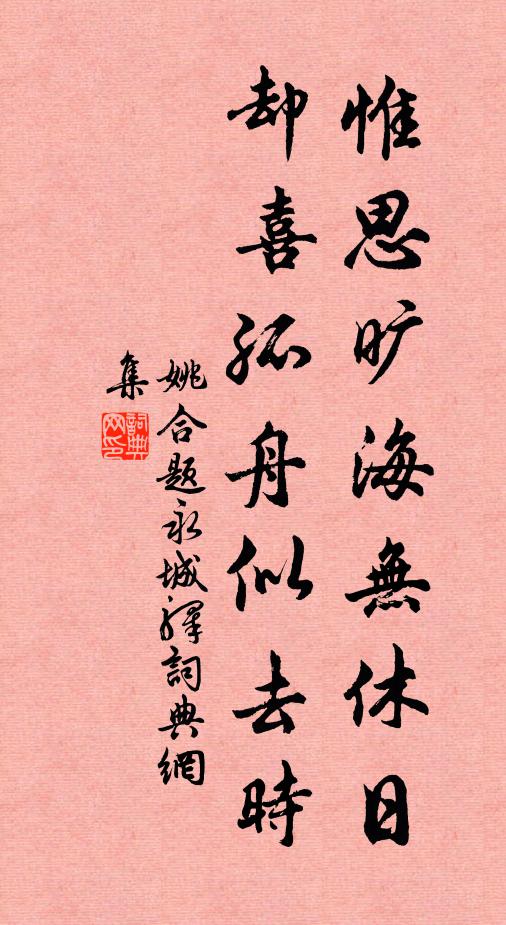 惟思旷海無休日
却喜孤舟似去時
姚合题永城驛詞典網
集
詞典
网印